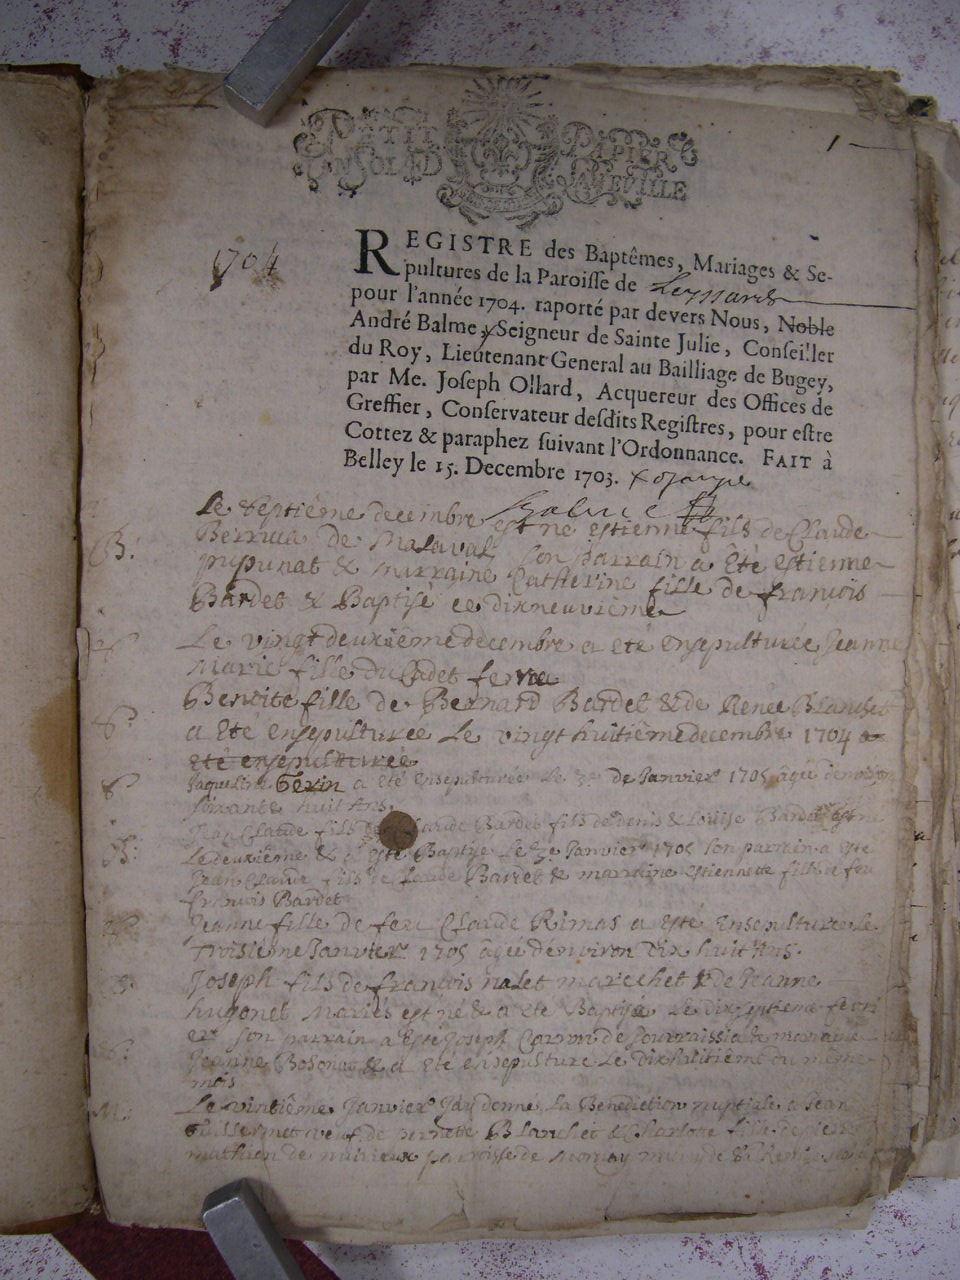 PETIT PAPIER
UN SOL LED LA FEUILLE
1
1704
REGISTRE des Baptêmes, Mariages & Se-
pultures de la Paroisse de Leyssard
pour l'année 1704. raporté par devers Nous, Noble
André Balme, Seigneur de Sainte Julie, Conseiller
du Roy, Lieutenant General au Bailliage de Bugey,
par Me. Joseph Ollard, Acquereur des Offices de
Greffier, Conservateur desdits Registres, pour estre
Cottez & paraphez suivant l'Ordonnance. FAIT à
Belley le 15. Decembre 1703.
Balme
Le septiéme decembre est né estienne fils de Claude
B. de Malaval son parrain à été estienne
& marraine Catherine fille de françois
Bardet & Baptisé ce dixneuvième
Le vingtdeuxième decembre a eté ensepulturée Jeanne
Marie fille du Cadet
Benoite fille de Bernard Bardet & de Renée Blanchet
S. a eté ensepulturée Le vingthuitième decembre 1704 a
eté ensepulturée
S. Jaqueline a été ensepulturée Le 2e de Janvier 1705 âgée denviron
soixante huit Ans.
Jean Claude fils de Claude Bardet fils de denis & Louise Bardet est né
B. Le deuxième & a esté Baptisé Le 3e Janvier 1705 son parrain a esté
Jean Claude fils de Claude Bardet & marraine estiennete fille de feu
françois Bardet
Jeanne fille de feu Claude Rimas a esté Ensepulturée Le
Troisième Janvier 1705 âgée denviron Dix huit Ans.
Joseph fils de françois nalet marechet & de Jeanne
hugonet Mariés est né & a eté Baptisé Le dixseptieme fevri
er son parrain a esté Joseph de & marraine
Jeanne & a eté ensepulturé Le dixhuitième du mesme
mois
M. Le vintième Janvier Jay donné La Benediction nuptiale a Jean
Guillermet veuf de pernete Blanchet & Charlotte fille de
de paroisse de